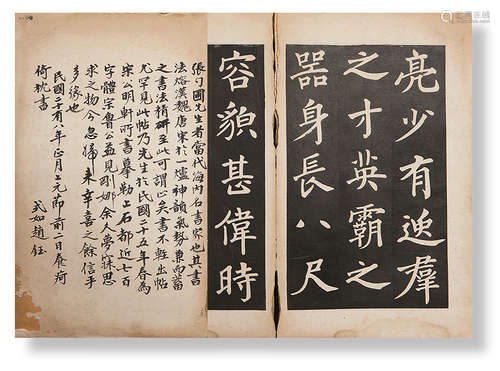 亮少有逸羣
之才英霸之
器身長八尺
容貌甚偉時
張守圃先生者當代海内名書家也其書
法熔漢魏唐宋於一爐神韻氣勢兼而蓄
之書法精研至此可謂矣書不輕出帖
尤罕見此帖乃先生於民國二十五年春為
宋公明軒所書摹勒上石都近七百
字體宗魯公益見剛娜余人夢寐思
求之物今忽歸來幸喜之餘信手
緣也
民國二十有八年正月上元節前二日養疴
倚枕書 式如趙鈺